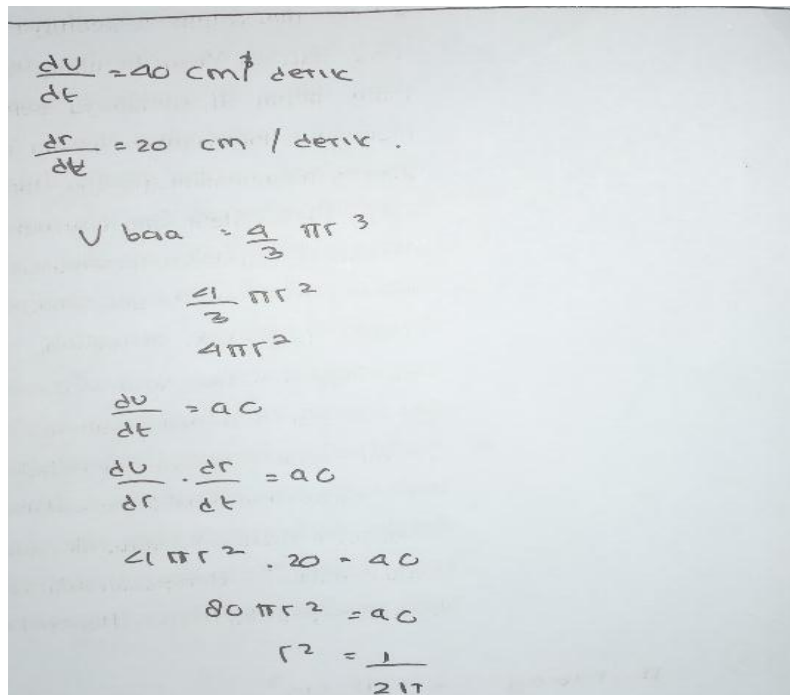 dv/dt = 40 cm³/ detik
dr/dt = 20 cm / detik .
V baa = 4/3 πr³
4/3 πr²
4πr²
dv/dt = 40
dv/dr . dr/dt = 40
4πr² . 20 = 40
80πr² = 40
r² = 1/2π